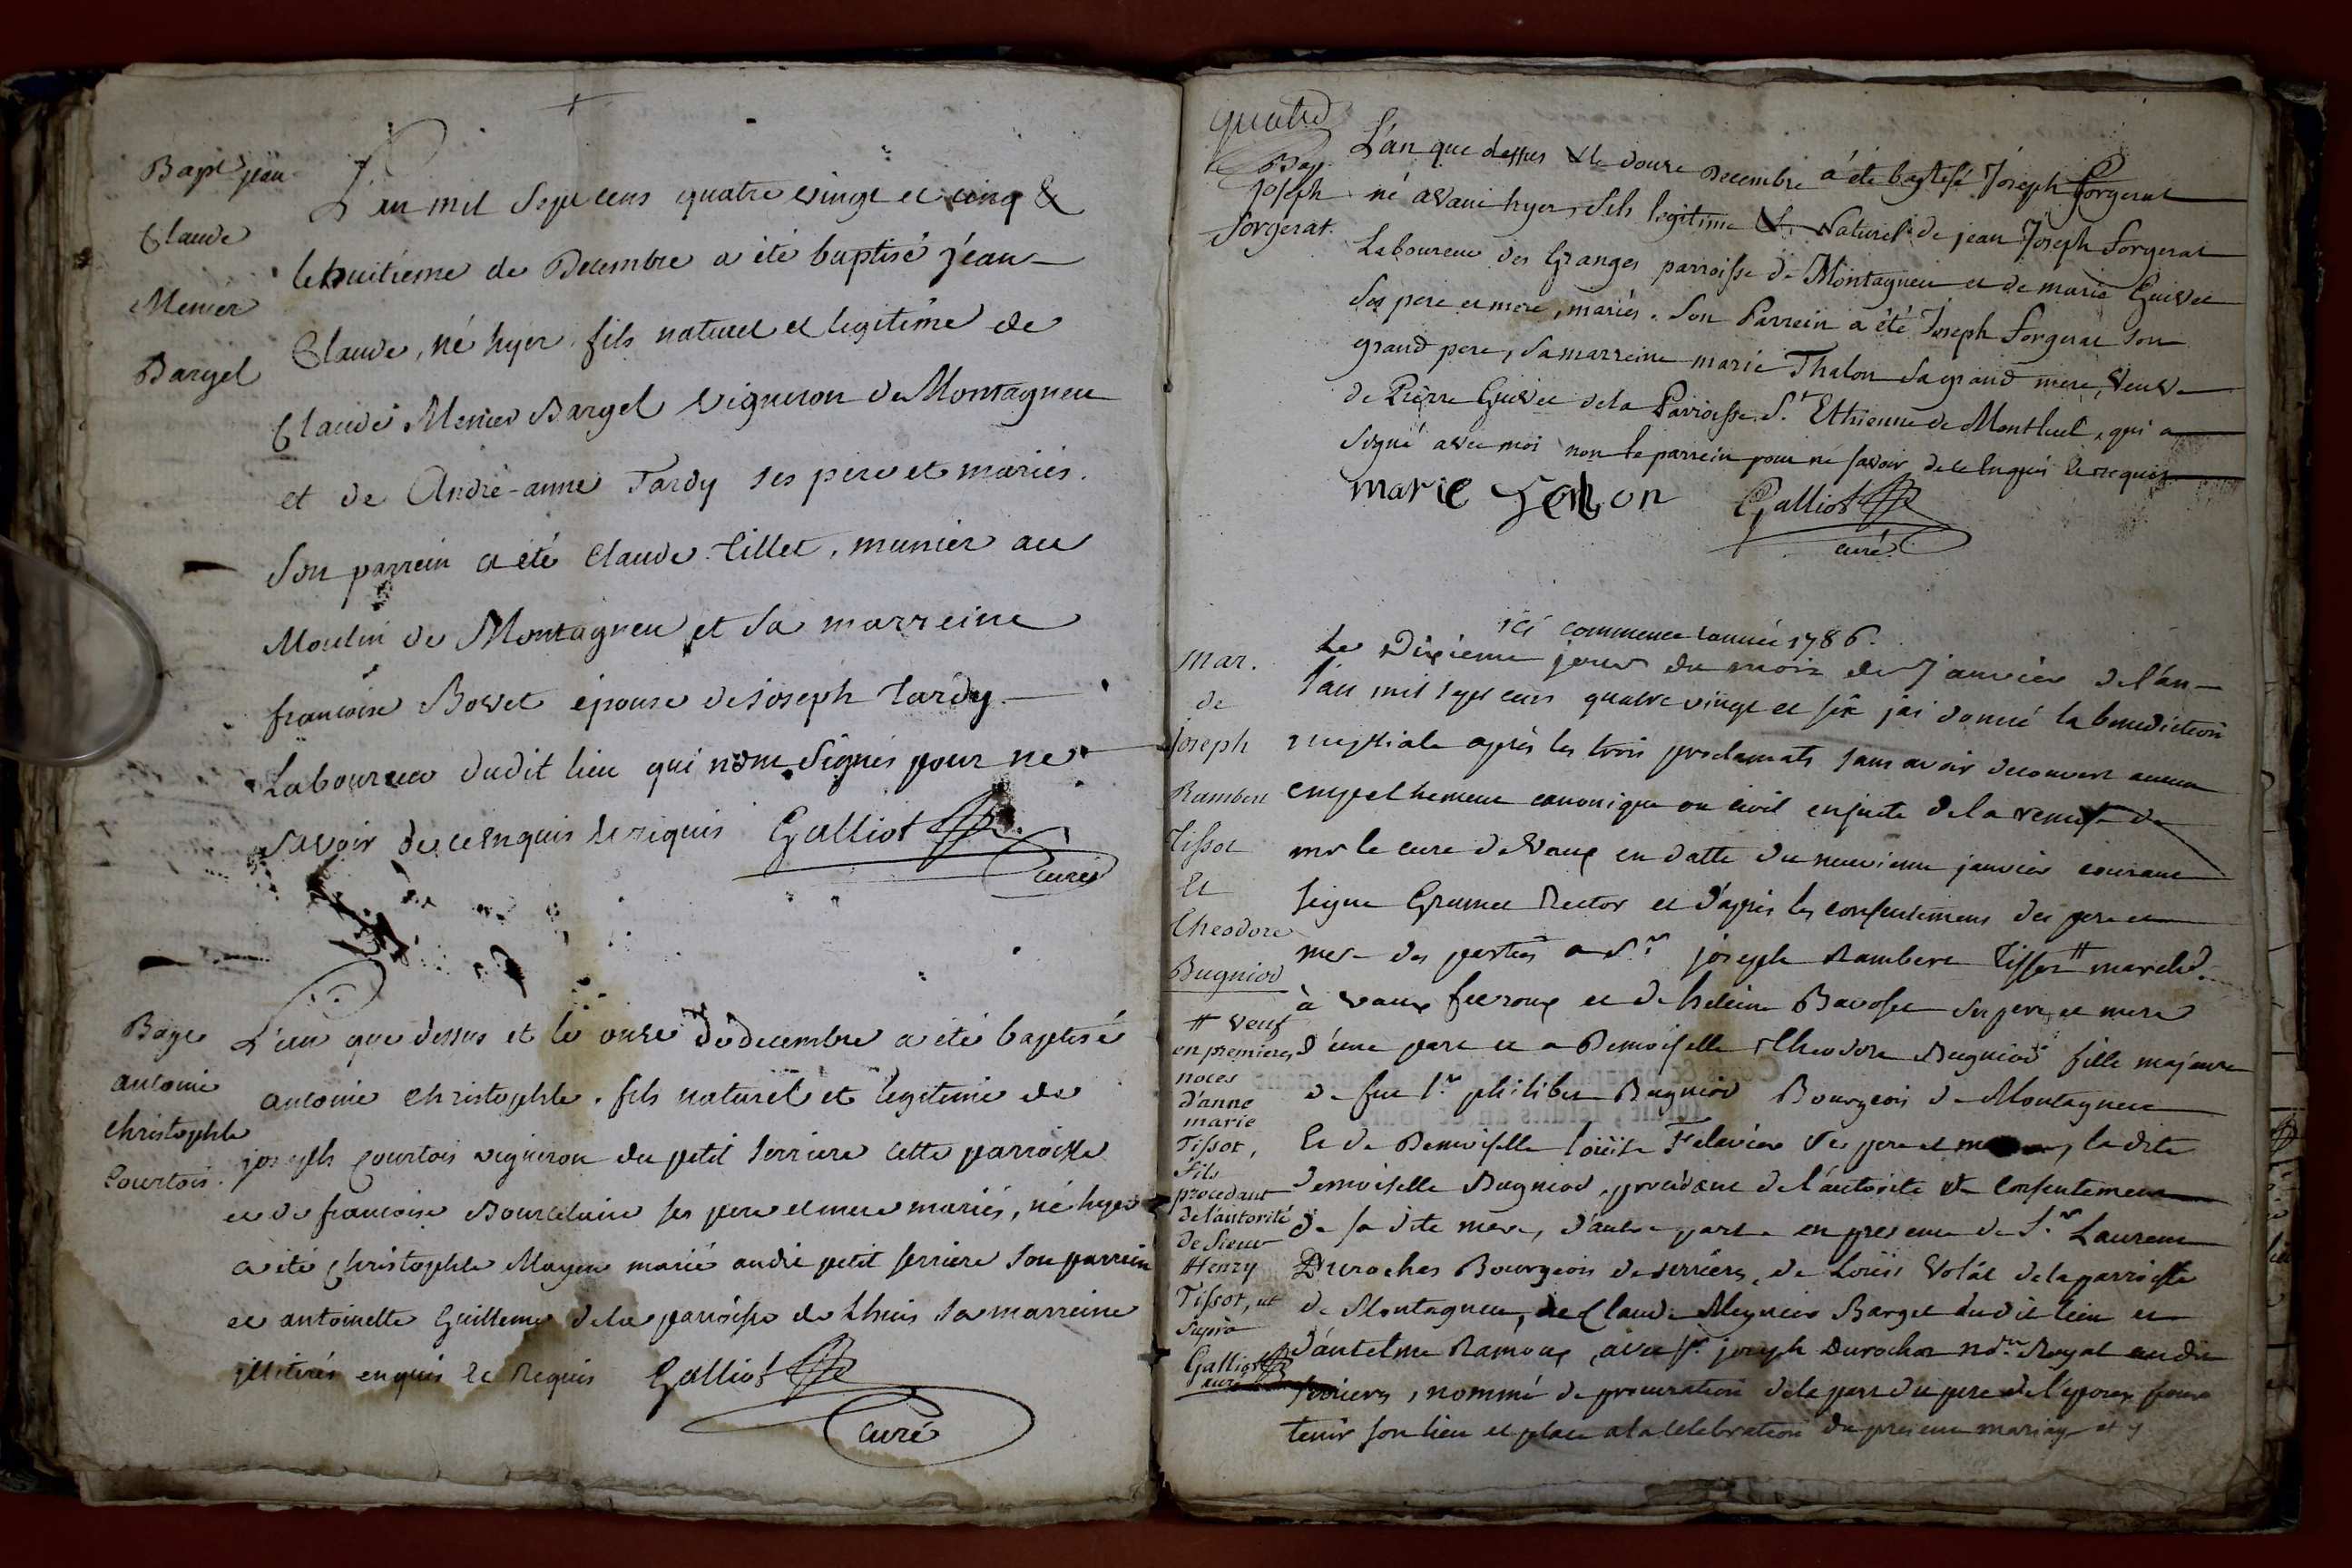 Bapt jean
Claude
Menier
Bargel
L'an mil sept cens quatre vingt et cinq &
le huitieme de Decembre a été baptisé jean
Claude, né hyer, fils naturel et legitime de
Claude Menier Bargel vigneron de Montagneu
et de André-anne Tardy ses pere et mariés.
Son parrein a été Claude Tillet, munier au
Moulin de Montagneu et sa marreine
francoise Bovet épouse de Joseph Tardy
Laboureur dudit lieu qui n'ont signés pour ne
savoir de ce enquis et requis Galliot
curé
Bapt
antoine
christophle
Courtois.
L'an que dessus et le onze de decembre a été baptisé
antoine christophle, fils naturel et legitime de
joseph Courtois vigneron du petit serriere cette parroisse
et de francoise Bourdelain ses pere et mere mariés, né hyer
a été christophle Mayen marié audit petit serriere son parrein
et antoinette Guilleme de la parroisse de Lhuis sa marreine
illitirés enquis et requis Galliot
curé
quatre
Bap.
joseph
forgerat.
L'an que dessus & le douze decembre a été baptisé Joseph forgerat
né avant hyer, fils legitime & naturel de jean Joseph forgerat
Laboureur des Granges parroisse de Montagneu et de marie Guivet
ses pere et mere, mariés. Son Parrein a été Joseph forgerat son
grand pere, sa marreine marie Thalon sa grand mere, veuve
de Pierre Guivet de la Parroisse St. Ethienne de Montluel, qui a
signé avec moi non le parrein pour ne savoir de ce enquis et requis
marie Galliot
curé
ici commence l'année 1786.
mar.
de
joseph
Rambert
Tissot
Et
Theodore
Bugniod
# veuf
en premieres
noces
d'anne
marie
Tissot,
fils
procedant
de l'autorité
de Sieur
Henry
Tissot, ut
supra
Galliot
curé
Le Dixieme jour du mois de Janvier de l'an
l'an mil sept cens quatre vingt et six jai donné la benediction
nuptiale après les trois proclamats sans avoir decouvert aucun
empechement canonique ou civil ensuite de la remise de
mr le curé de Vaux en datte du neuvieme janvier courant
signe Grumet Rector et d'après les consentemens des pere et
mere des parties a Sr. joseph Rambert Tissot # march.d
à vaux fevroux et de heleine Bavoset ses pere et mere
d'une part et a Demoiselle Theodore Bugniod fille majeure
de feu Sr philibert Bugniod Bourgeois de Montagneu
Et de Demoiselle louise ses pere et mere, la dite
demoiselle Bugniod procedant de l'autorité & consentement
de sa dite mere, d'autre part en presence de Sr Laurent
Durochas Bourgeois de serrieres, de Loüis Volat de la parroisse
de Montagneu, de Claude Meynier Bargel dudit lieu et
d'antelme Ramoux, avec Sr. joseph Durochat nore Royal audit
serrieres, nommé de procuration de la part du pere de l'epoux pour
tenir son lieu et place a la celebration du present mariage et y